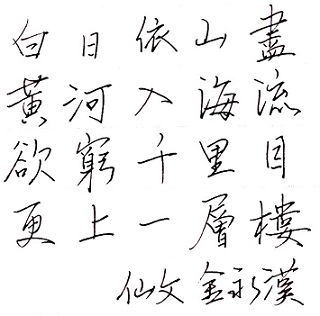 白日依山盡
黃河入海流
欲窮千里目
更上一層樓
仙文 金永漢